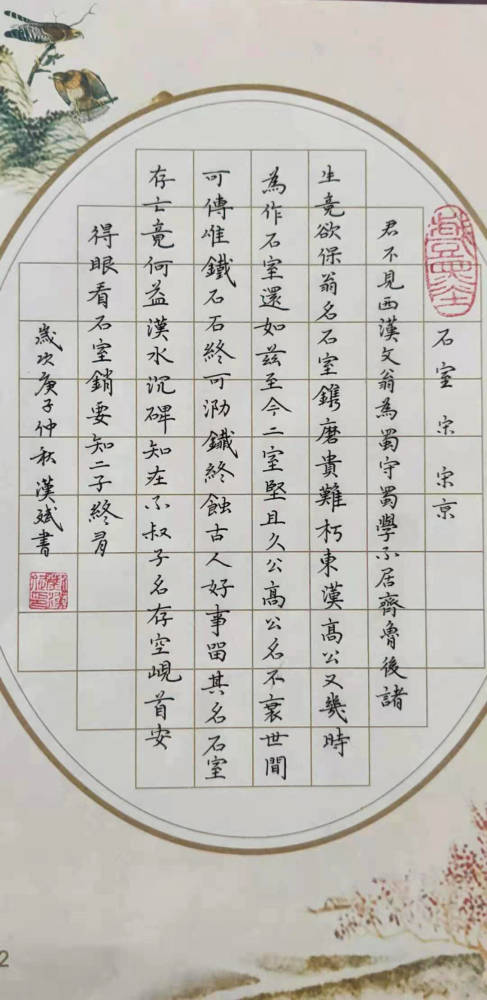 石室 宋 宋京
君不見西漢文翁為蜀守蜀學不居齊魯後諸
生竟欲保翁名石室鐫磨貴難朽東漢髙公又幾時
為作石室還如茲至今二室堅且久公髙公名不衰世間
可傳惟鐵石石終可泐鐵終蝕古人好事留其名石室
存亡竟何益漢水沉碑知在不叔子名存空峴首安
得眼看石室銷要知二子終
歲次庚子仲秋漢斌書
2